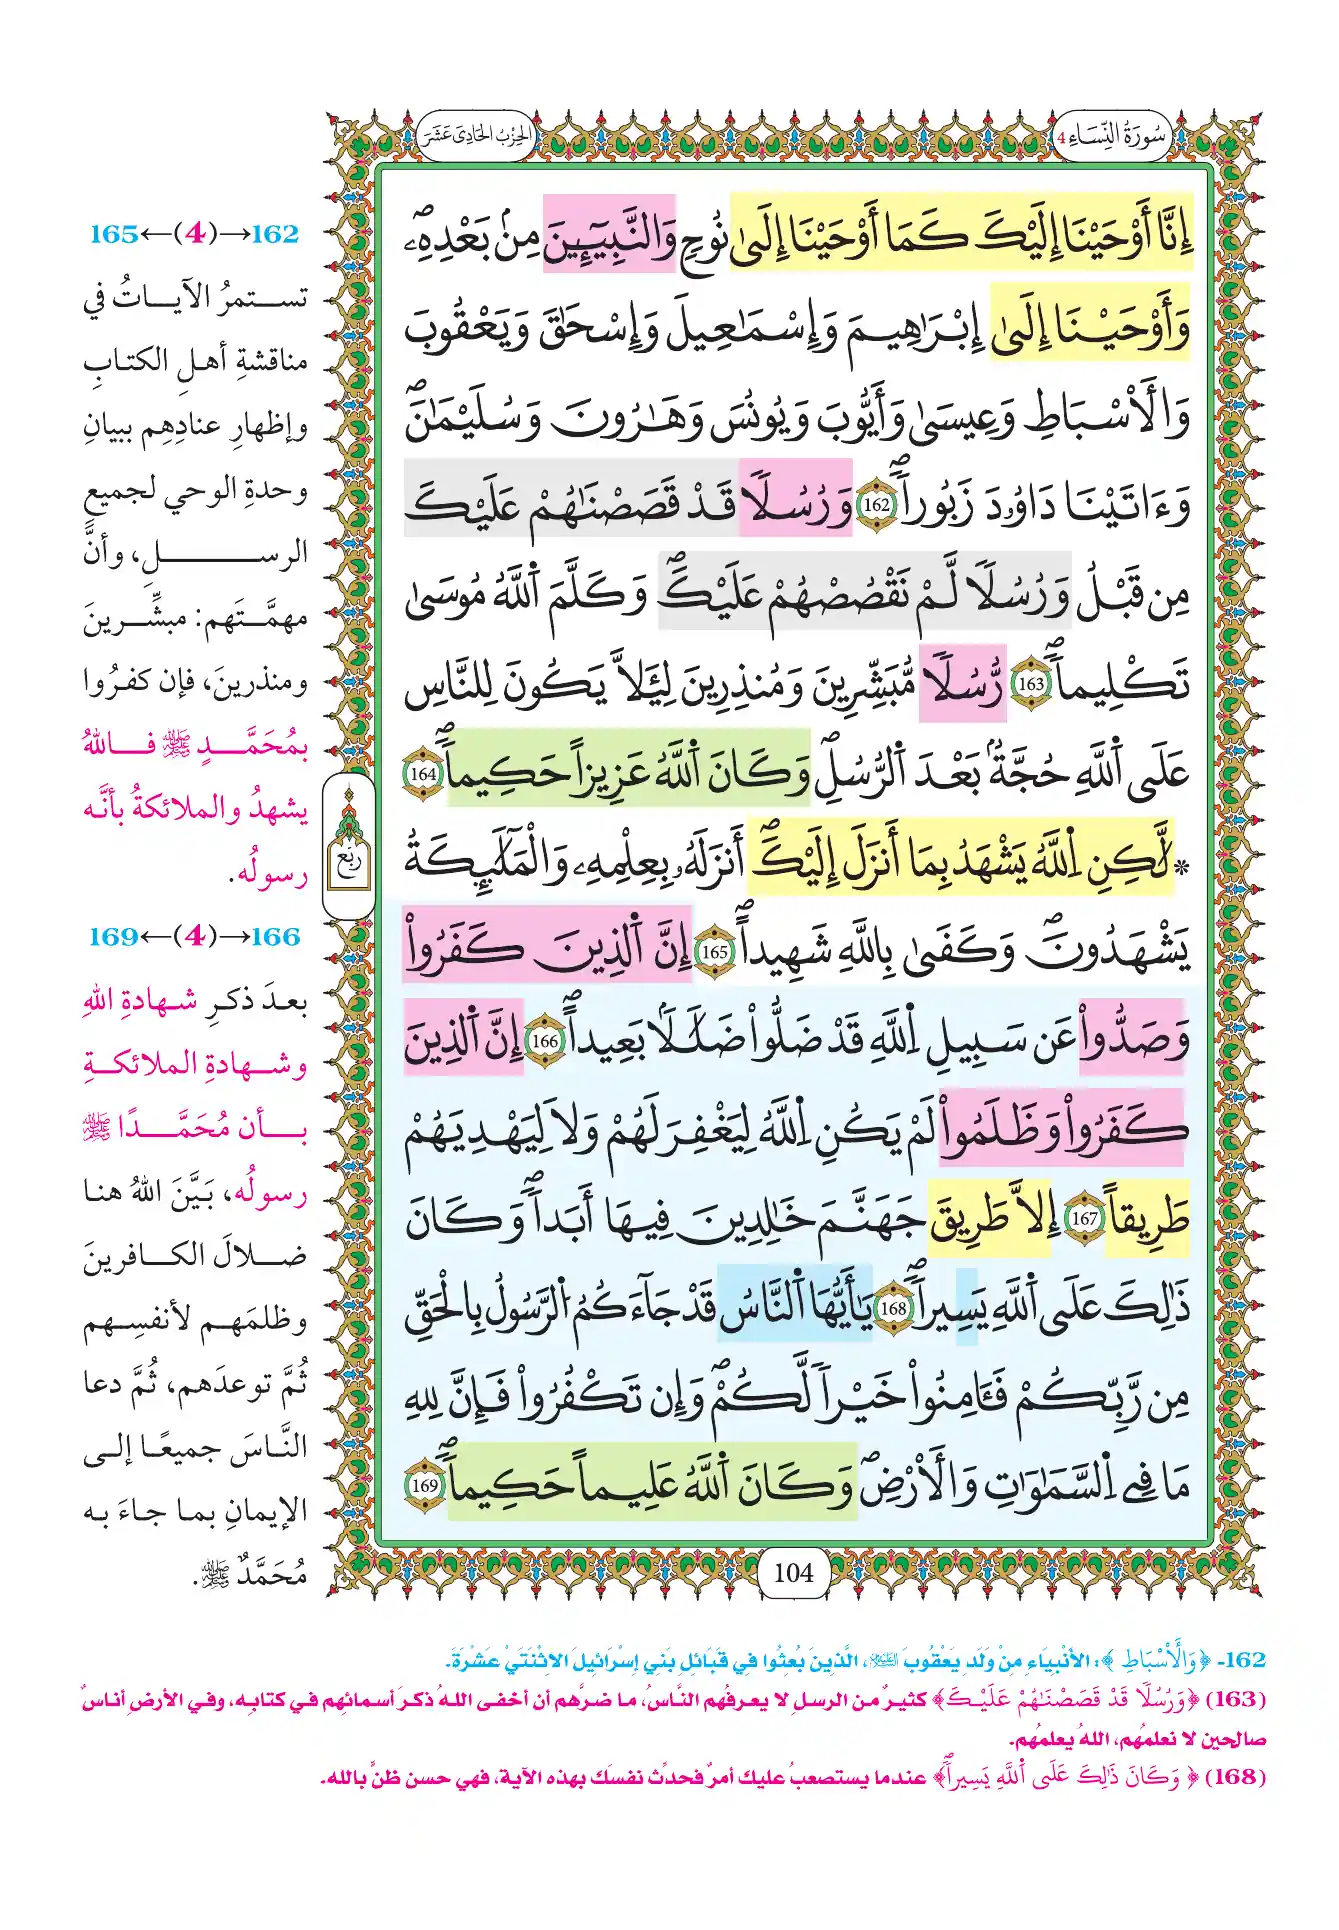 سُورَةُ النِّسَاءِ 4
الحِزْبُ الحَادِي عَشَرَ
إِنَّا أَوْحَيْنَا إِلَيْكَ كَمَا أَوْحَيْنَا إِلَىٰ نُوحٍ وَالنَّبِيٓـِٕينَ مِنۢ بَعْدِهِۦۖ
وَأَوْحَيْنَا إِلَىٰ إِبْرَٰهِيمَ وَإِسْمَٰعِيلَ وَإِسْحَٰقَ وَيَعْقُوبَ
وَالْأَسْبَاطِ وَعِيسَىٰ وَأَيُّوبَ وَيُونُسَ وَهَٰرُونَ وَسُلَيْمَٰنَۖ
وَءَاتَيْنَا دَاوُۥدَ زَبُوراًۖ 162 وَرُسُلًا قَدْ قَصَصْنَٰهُمْ عَلَيْكَ
مِن قَبْلُ وَرُسُلًا لَّمْ نَقْصُصْهُمْ عَلَيْكَۖ وَكَلَّمَ اَ۬للَّهُ مُوسَىٰ
تَكْلِيماًۖ 163 رُّسُلًا مُّبَشِّرِينَ وَمُنذِرِينَ لِئَلَّا يَكُونَ لِلنَّاسِ
عَلَى اَ۬للَّهِ حُجَّةُۢ بَعْدَ اَ۬لرُّسُلِۖ وَكَانَ اَ۬للَّهُ عَزِيزاً حَكِيماًۖ 164
* لَّٰكِنِ اِ۬للَّهُ يَشْهَدُ بِمَا أَنزَلَ إِلَيْكَۖ أَنزَلَهُۥ بِعِلْمِهِۦ وَالْمَلَٰٓئِكَةُ
يَشْهَدُونَۖ وَكَفَىٰ بِاللَّهِ شَهِيداًۖ 165 إِنَّ اَ۬لذِينَ كَفَرُواْ
وَصَدُّواْ عَن سَبِيلِ اِ۬للَّهِ قَدْ ضَلُّواْ ضَلَٰلَاۢ بَعِيداًۖ 166 إِنَّ اَ۬لذِينَ
كَفَرُواْ وَظَلَمُواْ لَمْ يَكُنِ اِ۬للَّهُ لِيَغْفِرَ لَهُمْ وَلَا لِيَهْدِيَهُمْ
طَرِيقاً 167 إِلَّا طَرِيقَ جَهَنَّمَ خَٰلِدِينَ فِيهَا أَبَداًۖ وَكَانَ
ذَٰلِكَ عَلَى اَ۬للَّهِ يَسِيراًۖ 168 يَٰأَيُّهَا اَ۬لنَّاسُ قَدْ جَآءَكُمُ اُ۬لرَّسُولُ بِالْحَقِّ
مِن رَّبِّكُمْ فَـَٔامِنُواْ خَيْراً لَّكُمْۖ وَإِن تَكْفُرُواْ فَإِنَّ لِلهِ
مَا فِي اِ۬لسَّمَٰوَٰتِ وَالْأَرْضِۖ وَكَانَ اَ۬للَّهُ عَلِيماً حَكِيماًۖ 169
ربع
104
162→(4)←165
تستمرُ الآياتُ في
مناقشةِ أهلِ الكتابِ
وإظهارِ عنادِهِم ببيانِ
وحدةِ الوحي لجميعِ
الرسلِ، وأنَّ
مهمَّتَهم: مبشِّرينَ
ومنذرينَ، فإن كفرُوا
بمُحَمَّدٍ ﷺ فاللهُ
يشهدُ والملائكةُ بأنَّه
رسولُه.
166→(4)←169
بعدَ ذكرِ شهادةِ اللهِ
وشهادةِ الملائكةِ
بأن مُحَمَّدًا ﷺ
رسولُه، بَيَّنَ اللهُ هنا
ضلالَ الكافرينَ
وظلمَهم لأنفسِهم
ثُمَّ توعدَهم، ثُمَّ دعا
النَّاسَ جميعًا إلى
الإيمانِ بما جاءَ به
مُحَمَّدٌ ﷺ.
162- ﴿وَالْأَسْبَاطِ﴾: الأَنْبِيَاءِ مِنْ وَلَدِ يَعْقُوبَ عليه السلام، الَّذِينَ بُعِثُوا في قَبَائِلِ بَنِي إِسْرَائِيلَ الاثْنَتَيْ عَشْرَةَ.
(163) ﴿وَرُسُلًا قَدْ قَصَصْنَٰهُمْ عَلَيْكَ﴾ كثيرٌ من الرسلِ لا يعرفُهم النَّاسُ، ما ضرَّهم أن أخفى اللهُ ذكرَ أسمائهِم في كتابِه، وفي الأرضِ أناسٌ
صالحين لا نعلمُهم، اللهُ يعلمُهم.
(168) ﴿وَكَانَ ذَٰلِكَ عَلَى اَ۬للَّهِ يَسِيراًۖ﴾ عندما يستصعبُ عليك أمرٌ فحدِّث نفسَك بهذه الآية، فهي حسن ظنٍّ بالله.